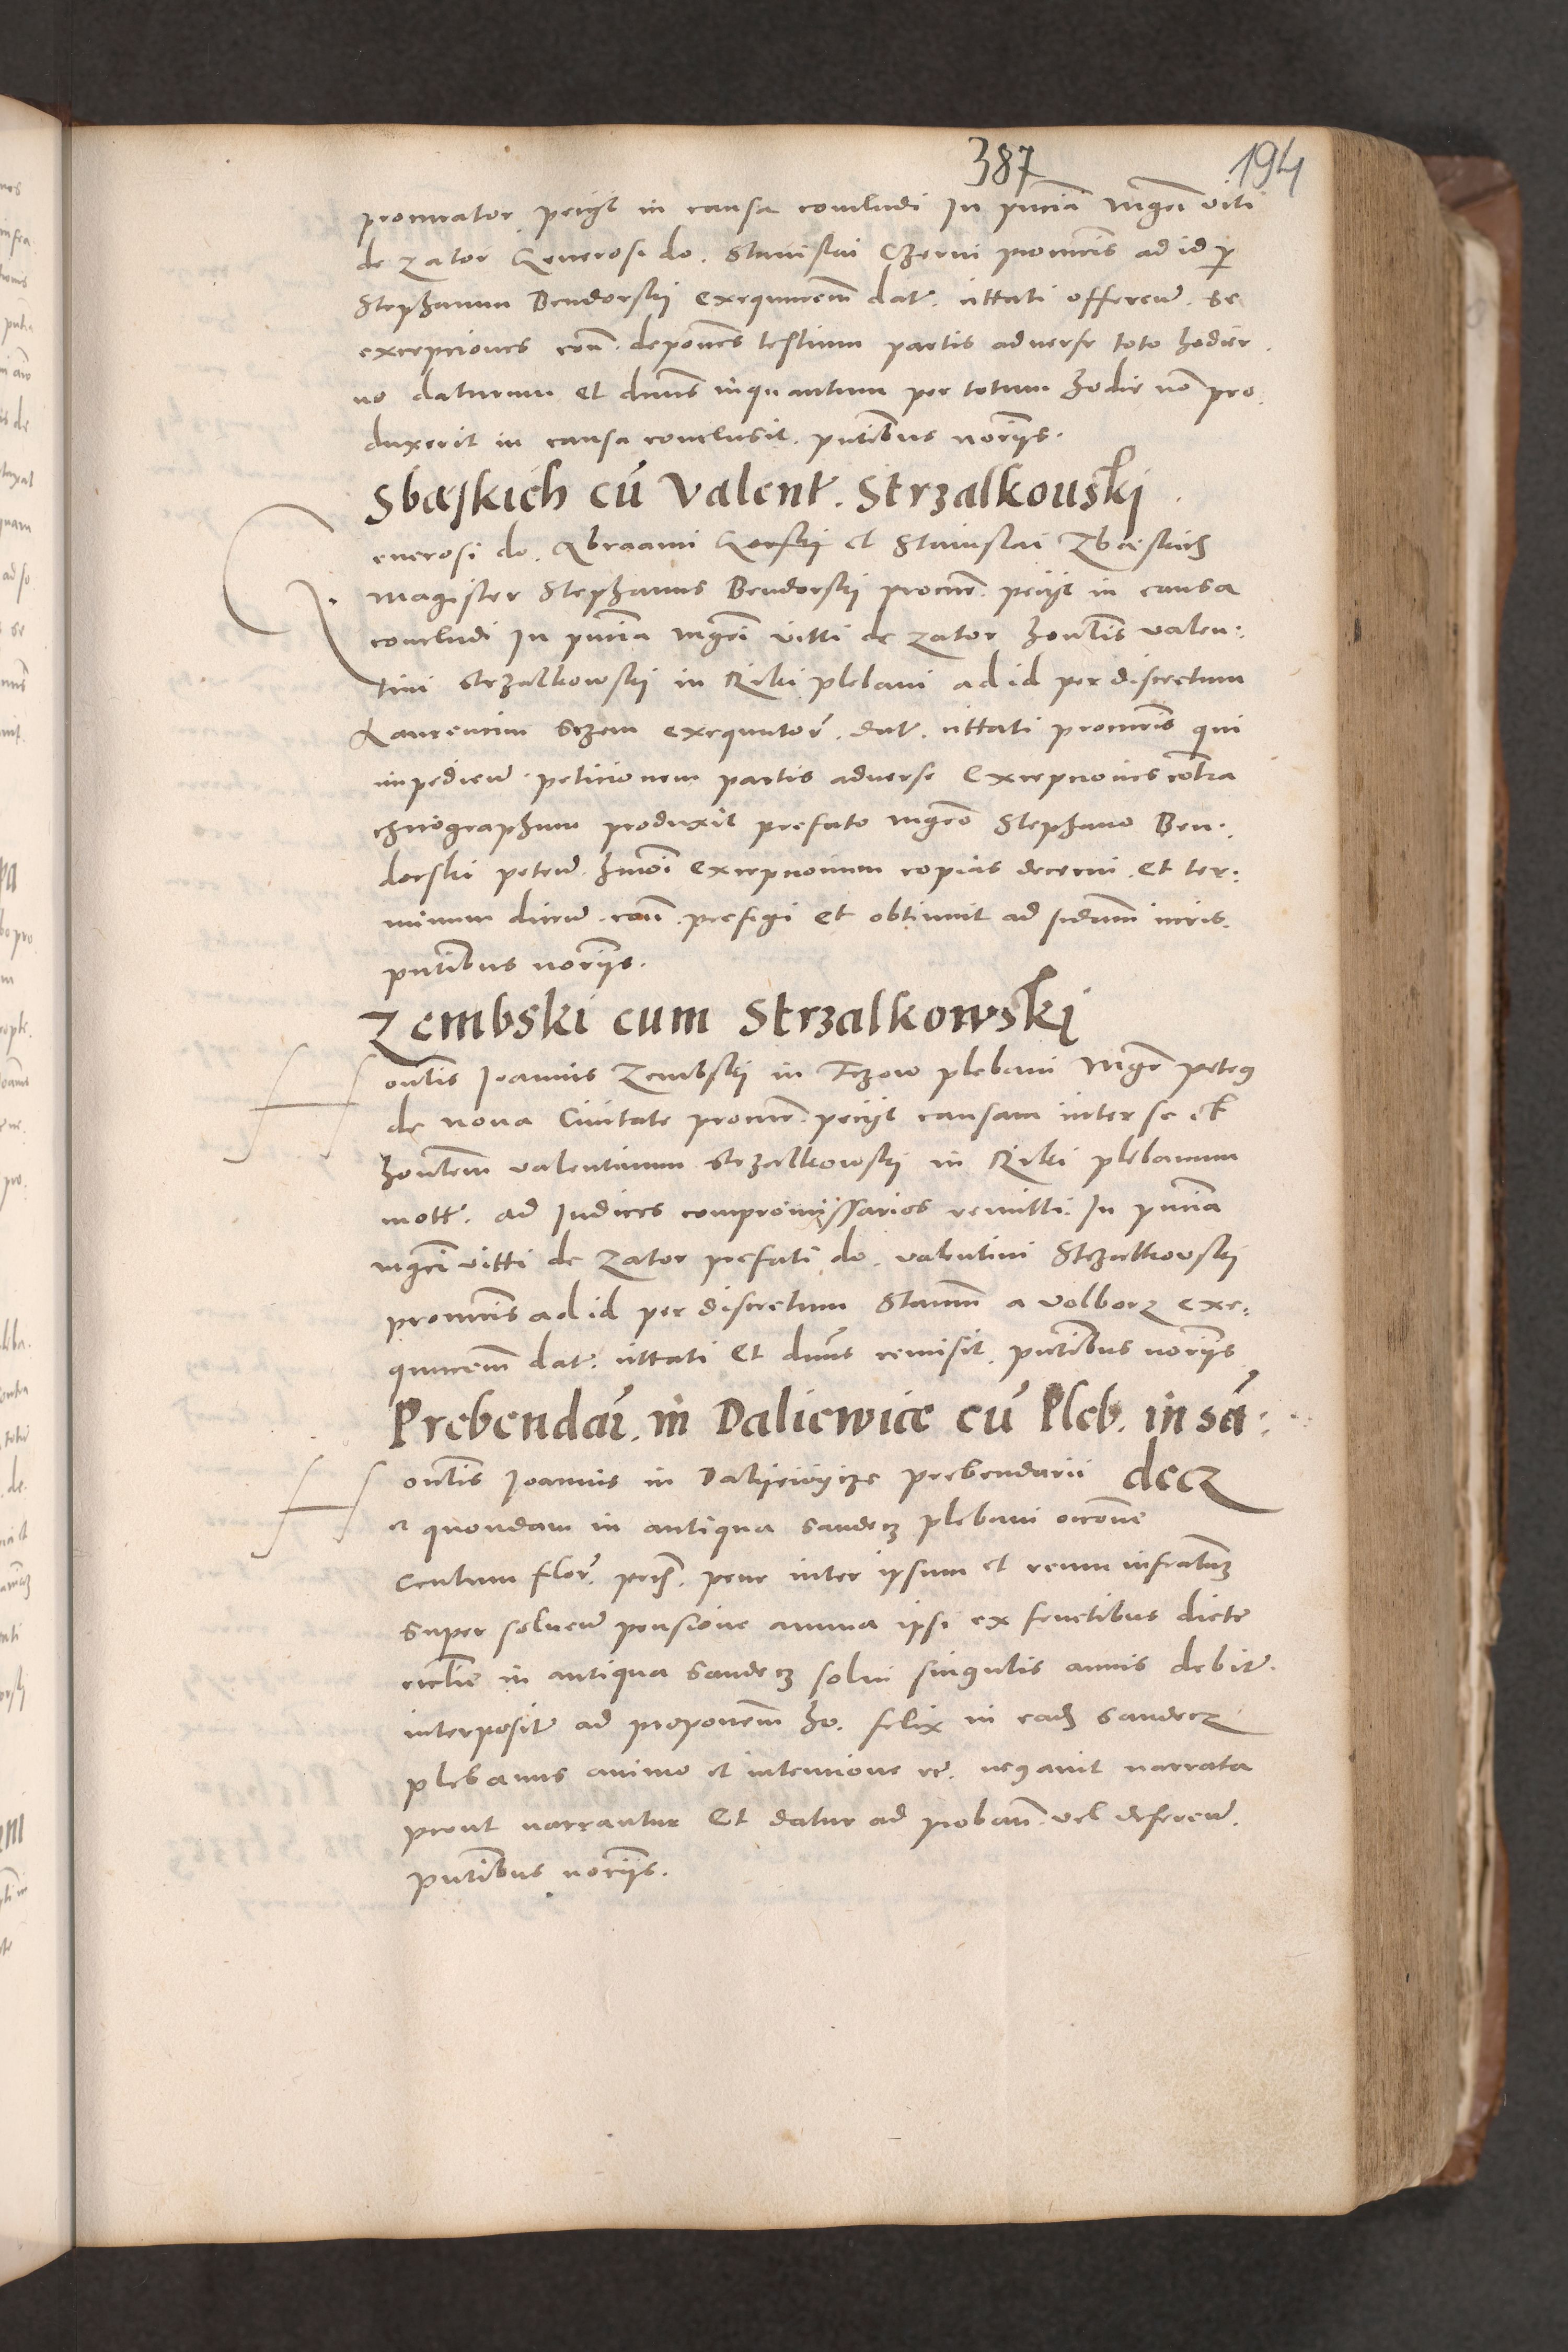 387 194
procurator pecijt in causa concludi In pñcia Mgri viti
de Zator Generosi do. Stanislai Czerni procuris ad id p
Stephanum Bendorskij exequucrem dat. cittati offeren. se
excepciones con. deponẽs testium partis adverse toto hodier
no daturum et dnus inquantum per totum hodie nõ pro
duxerit in causa conclusit. pntibus norijs.
Sbąskich cũ Valent. Strzalkouski
Generosi do. Abraami et Stanislai Zbąskich
Magister Stephanus Bendorskij procur. pecijt in causa
concludi In pñcia Mgri vitti de Zator honlis valen:
tini Strzalkowskij in Riki plebani ad id per discretum
Laurencium exequutor. dat. cittati procuris qui
impedien. peticionem partis adverse excepciones cõtra
chirographum produxit prefato Mgro Stephano Ben:
dorski peten. hmõi excepcionum copias decerni et ter:
minum dicen. con. prefigi et obtinuit ad sidum iuris.
pntibus norijs.
Zembski cum Strzalkowski
Honlis Joannis Zembskij in Tczow plebani Mgr petrus
de nova Civitate procur. pecijt causam inter se et
honlem valentinum Strzalkowskij in Riki plebanum
mott. ad Iudices compromissarios remitti. In pñcia
Mgri vitti de Zator prefati do. valentini Strzalkowskij
procuris ad id per discretum Stanm a Volborz exe:
quucrem dat. cittati Et dnus remisit. pntibus norijs
Prebendar. in Daliewice cũ Pleb. in sã:
decz
Honlis Joannis in Dalijewijcze prebendarii
et quondam in antiqua Sandecz plebani occone
Centum flor. pene inter ipsum et reum infratum
super solven. pensione annua ipsi ex fructibus dicte
ecclie in antiqua Sandecz solvi singulis annis debit.
interposit. ad proponem ho. felix in eadẽ Sandecz
plebanus animo et intencione re. negavit narrata
prout narrantur Et datur ad proban. vel deferen.
pntibus norijs.